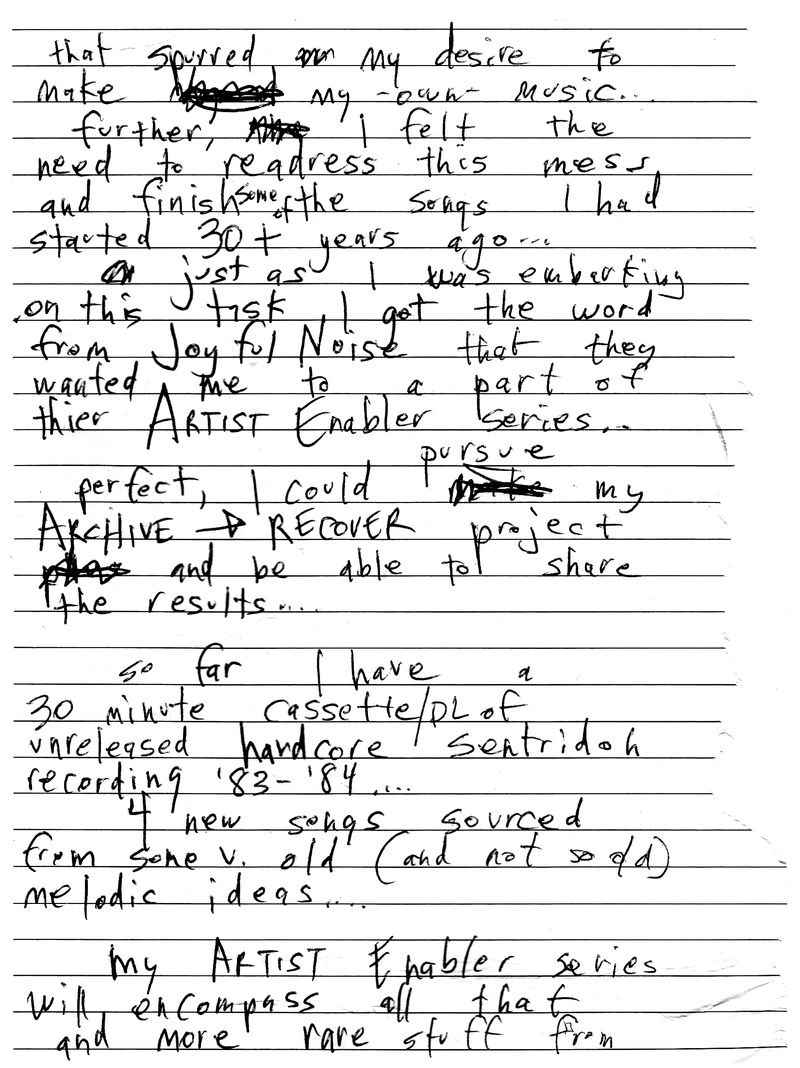 that spurred on my desire to
make my -own- music...
further, I felt the
need to readress this mess,
and finish some of the songs I had
started 30+ years ago...
just as I was embarking
on this task I got the word
from Joyful Noise that they
wanted me to a part of
thier ARTIST Enabler series...
perfect, I could pursue my
ARCHIVE → RECOVER project
and be able to share
the results....
so far I have a
30 minute cassette/DL of
unreleased hardcore sentridoh
recording '83-'84....
4 new songs sourced
from some v. old (and not so old)
melodic ideas....
my ARTIST Enabler series
will encompass all that
and more rare stuff from